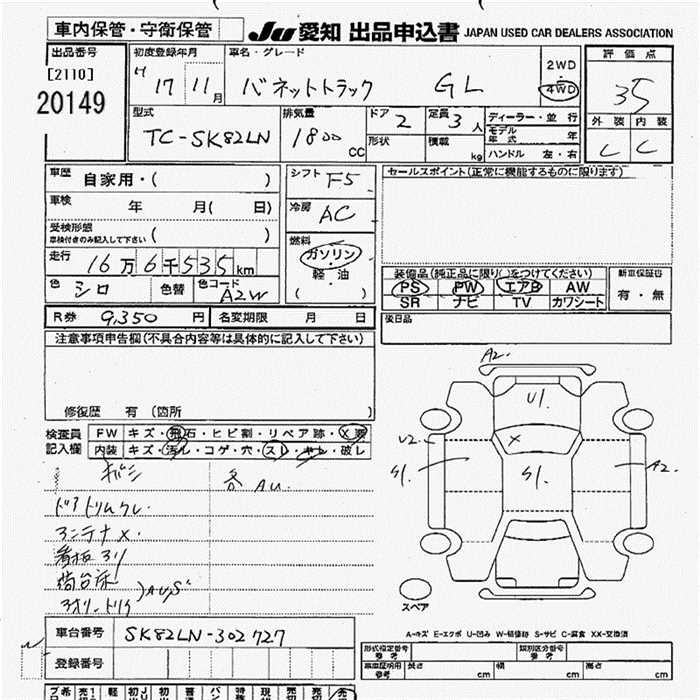 車内保管・守衛保管
JU 愛知 出品申込書 JAPAN USED CAR DEALERS ASSOCIATION
出品番号
[2110]
20149
初度登録年月
H 17 11月
車名・グレード
バネットトラック GL
2WD
・
4WD
評価点
35
外装 内装
C C
型式
TC-SK82LN
排気量
1800 CC
ドア 2
定員 3 人
形状
積載 kg
ディーラー・並行
モデル年式 年
ハンドル 左・右
車歴 自家用・( )
車検 年 月( 日)
受検形態
車検付きのみ記入して下さい ( )
走行 16万6千535km
色 シロ 色替 色コード A2W
シフト F5
冷房 AC
燃料
ガソリン
・
軽・油
( )
セールスポイント(正常に機能するものに限ります)
装備品(純正品に限り○をつけてください)
PS PW エアB AW
SR ナビ TV カワシート
新車保証書
有・無
R券 9,350 円 名変期限 月 日
後日品
注意事項申告欄(不具合内容等は具体的に記入して下さい)
修復歴 有 (箇所 )
検査員記入欄
FW キズ・飛石・ヒビ割・リペア跡・X要
内装 キズ・汚レ・コゲ・穴・スレ・キレ・破レ
各AU
アンテナX
荷台床
A2
U1
U2
X
S1
S1
A2
スペア
A-キズ E-エクボ U-凹み W-補修跡 S-サビ C-腐食 XX-交換済
車台番号 SK82LN-302727
登録番号
形式指定番号 参考
類別区分番号 参考
車庫証明用 参考 長さ cm 幅 cm 高さ cm